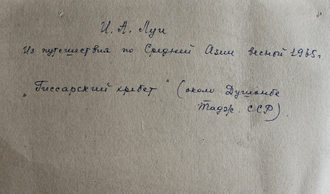 И. А. Луи
Из путешествия по Средней Азии весной 1965 г.
"Гиссарский хребет" (около Душанбе
Тадж. ССР)